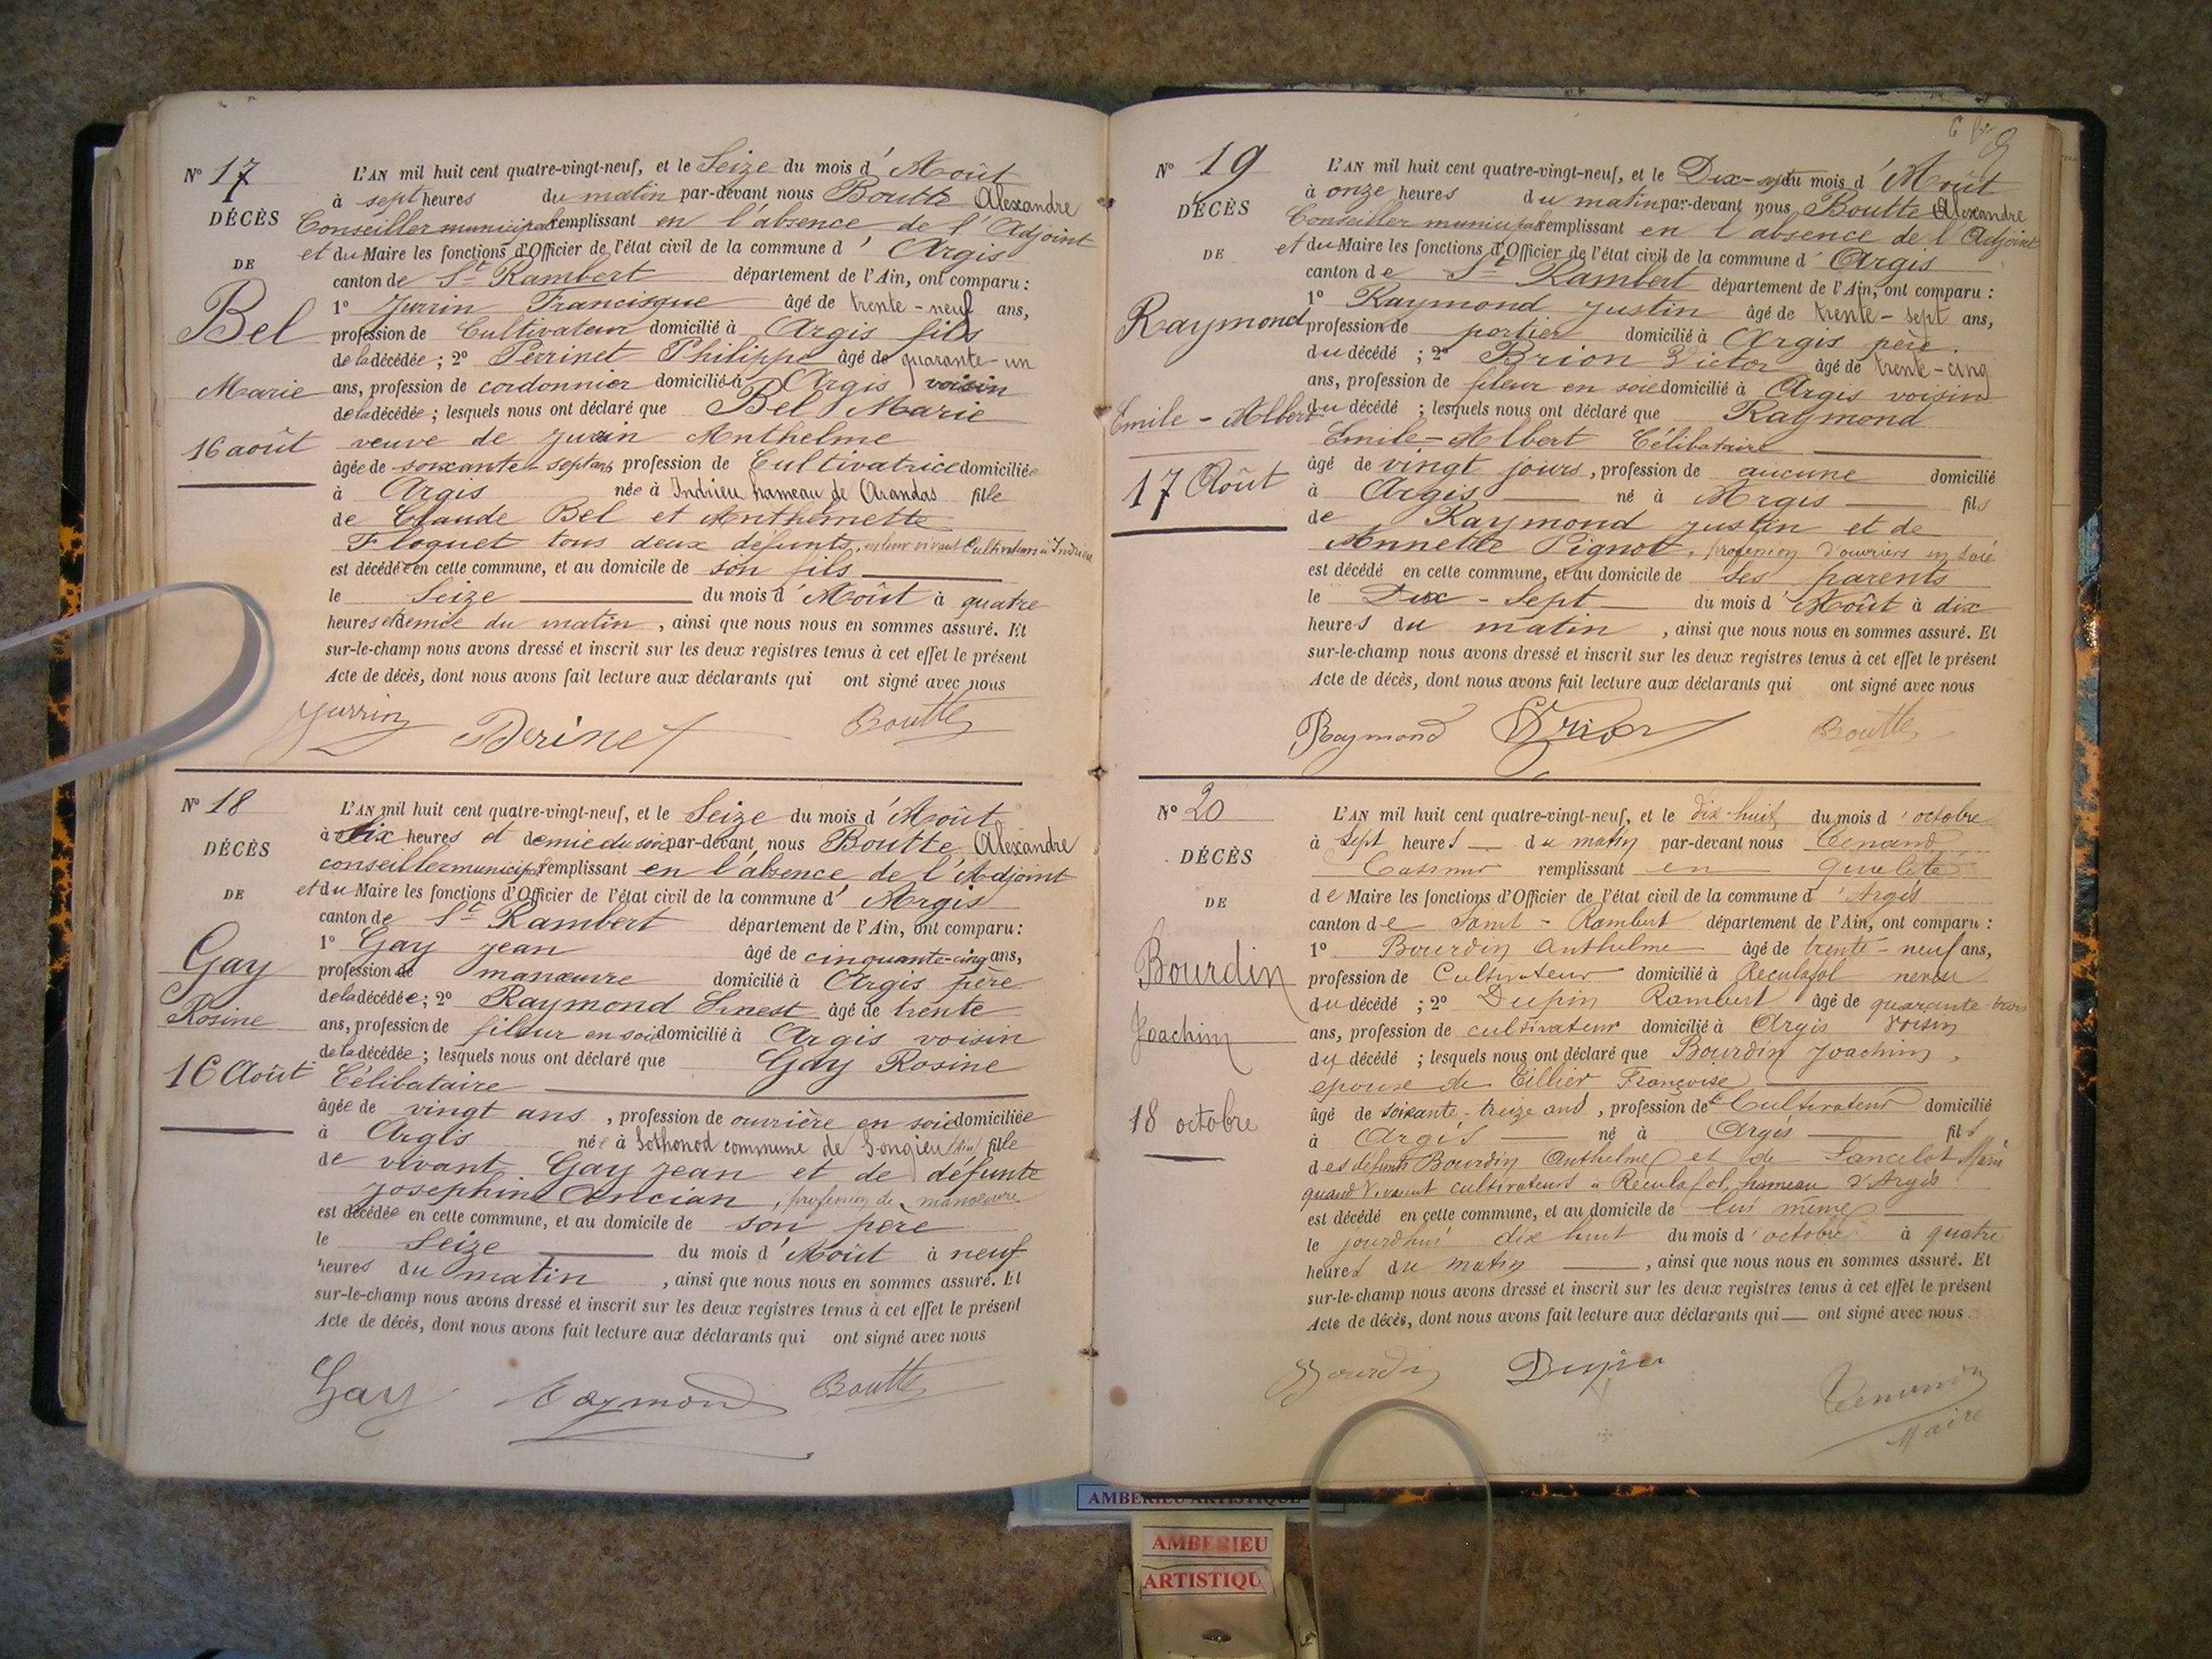 N° 17
DÉCÈS
DE
Bel
Marie
16 août
L'AN mil huit cent quatre-vingt-neuf, et le Seize du mois d'Août
à sept heures du matin par-devant nous Boutte Alexandre
Conseiller municipal remplissant en l'absence de l'Adjoint
et du Maire les fonctions d'Officier de l'état civil de la commune d'Argis
canton de St Rambert département de l'Ain, ont comparu :
1° Jurrin Francisque âgé de trente-neuf ans,
profession de Cultivateur domicilié à Argis fils
de la décédée ; 2° Perrinet Philippe âgé de quarante-un
ans, profession de cordonnier domicilié à Argis voisin
de la décédée ; lesquels nous ont déclaré que Bel Marie
veuve de Anthelme
âgée de soixante-sept ans, profession de Cultivatrice domiciliée
à Argis née à Indrieu hameau de Arandas fille
de Claude Bel et Anthemette
Floquet tous deux défunts, en leur vivant Cultivateurs à Indrieu
est décédée en cette commune, et au domicile de son fils
le Seize du mois d'Août à quatre
heures et demie du matin, ainsi que nous nous en sommes assuré. Et
sur-le-champ nous avons dressé et inscrit sur les deux registres tenus à cet effet le présent
Acte de décès, dont nous avons fait lecture aux déclarants qui ont signé avec nous
Jurrin Perinet Boutte
N° 18
DÉCÈS
DE
Gay
Rosine
16 Août
L'AN mil huit cent quatre-vingt-neuf, et le Seize du mois d'Août
à Six heures et demie du soir par-devant nous Boutte Alexandre
conseiller municipal remplissant en l'absence de l'Adjoint
et du Maire les fonctions d'Officier de l'état civil de la commune d'Argis
canton de St Rambert département de l'Ain, ont comparu :
1° Gay Jean âgé de cinquante-cinq ans,
profession de manœuvre domicilié à Argis père
de la décédée ; 2° Raymond Ernest âgé de trente
ans, profession de fileur en soie domicilié à Argis voisin
de la décédée ; lesquels nous ont déclaré que Gay Rosine
Célibataire
âgée de vingt ans, profession de ouvrière en soie domiciliée
à Argis née à Sothonod commune de Songieu (Ain) fille
de vivant Gay Jean et de défunte
Josephine Ancian, profession de manœuvre
est décédée en cette commune, et au domicile de son père
le Seize du mois d'Août à neuf
heures du matin, ainsi que nous nous en sommes assuré. Et
sur-le-champ nous avons dressé et inscrit sur les deux registres tenus à cet effet le présent
Acte de décès, dont nous avons fait lecture aux déclarants qui ont signé avec nous
Gay Raymond Boutte
9
N° 19
DÉCÈS
DE
Raymond
Emile-Albert
17 Août
L'AN mil huit cent quatre-vingt-neuf, et le Dix-sept du mois d'Août
à onze heures du matin par-devant nous Boutte Alexandre
Conseiller municipal remplissant en l'absence de l'Adjoint
et du Maire les fonctions d'Officier de l'état civil de la commune d'Argis
canton de St Rambert département de l'Ain, ont comparu :
1° Raymond Justin âgé de trente-sept ans,
profession de portier domicilié à Argis père
du décédé ; 2° Brion Victor âgé de trente-cinq
ans, profession de fileur en soie domicilié à Argis voisin
du décédé ; lesquels nous ont déclaré que Raymond
Emile-Albert Célibataire
âgé de vingt jours, profession de aucune domicilié
à Argis né à Argis fils
de Raymond Justin et de
Annette Pignot, profession d'ouvriers en soie
est décédé en cette commune, et au domicile de Ses parents
le Dix-Sept du mois d'Août à dix
heures du matin, ainsi que nous nous en sommes assuré. Et
sur-le-champ nous avons dressé et inscrit sur les deux registres tenus à cet effet le présent
Acte de décès, dont nous avons fait lecture aux déclarants qui ont signé avec nous
Raymond Brion Boutte
N° 20
DÉCÈS
DE
Bourdin
Joachim
18 octobre
L'AN mil huit cent quatre-vingt-neuf, et le dix-huit du mois d'octobre
à Sept heures du matin par-devant nous Tenand
Casimir remplissant en qualité
de Maire les fonctions d'Officier de l'état civil de la commune d'Argis
canton de Saint-Rambert département de l'Ain, ont comparu :
1° Bourdin Anthelme âgé de trente-neuf ans,
profession de Cultivateur domicilié à Reculafol neveu
du décédé ; 2° Dupin Rambert âgé de quarante-trois
ans, profession de cultivateur domicilié à Argis voisin
du décédé ; lesquels nous ont déclaré que Bourdin Joachim,
epoux de Tillier Françoise
âgé de soixante-treize ans, profession de Cultivateur domicilié
à Argis né à Argis fils
des défunts Bourdin Anthelme et de Lancelot Marie
quand vivaient cultivateurs à Reculafol, hameau d'Argis
est décédé en cette commune, et au domicile de lui même
le jourdhui dix huit du mois d'octobre à quatre
heures du matin, ainsi que nous nous en sommes assuré. Et
sur-le-champ nous avons dressé et inscrit sur les deux registres tenus à cet effet le présent
Acte de décès, dont nous avons fait lecture aux déclarants qui ont signé avec nous
Bourdin Dupin Tenand
Maire
AMBERIEU ARTISTIQUE
AMBERIEU
ARTISTIQU